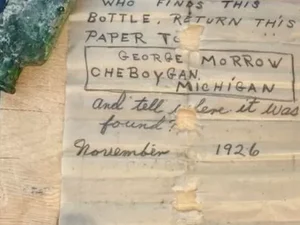 WHO FINDS THIS
BOTTLE, RETURN THIS
PAPER TO
GEORGE MORROW
CHEBOYGAN,
MICHIGAN
and tell where it was
found?
November 1926